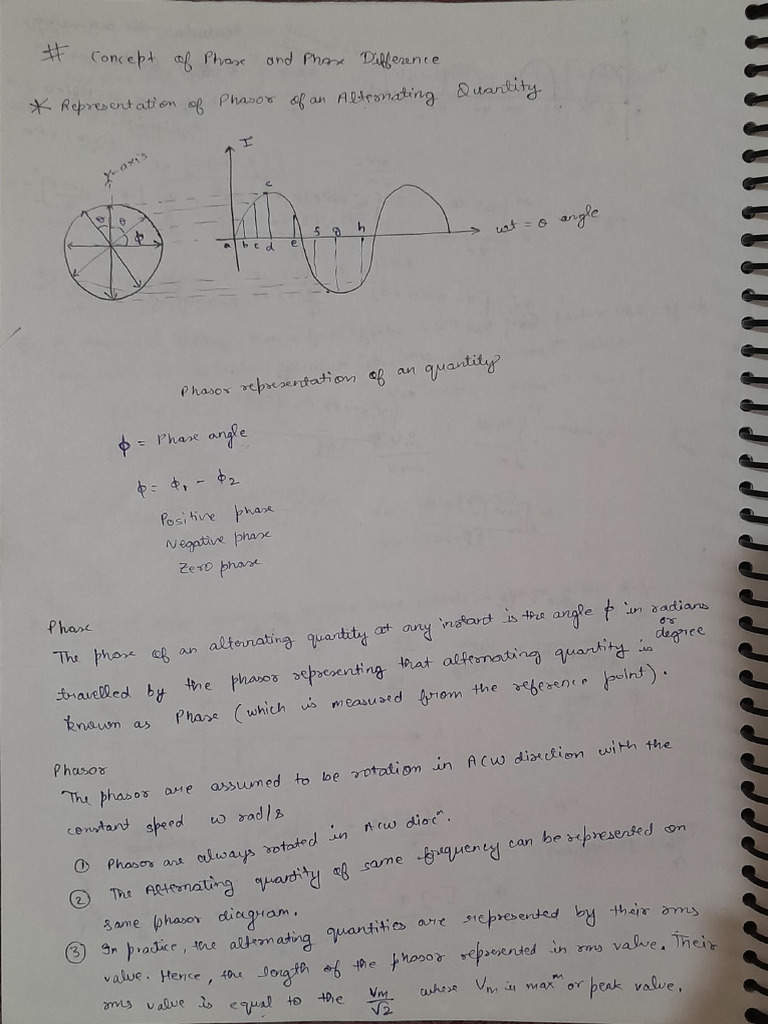 # Concept of Phase and Phase Difference
* Representation of Phasor of an Alternating Quantity
Y-axis
I
c
θ θ
ϕ
a b c d e f g h
wt = θ angle
Phasor representation of an quantity
ϕ = Phase angle
ϕ = ϕ1 - ϕ2
Positive phase
Negative phase
Zero phase
Phase
The phase of an alternating quantity at any instant is the angle ϕ in radians
or
degree
travelled by the phasor representing that alternating quantity is
known as Phase (which is measured from the reference point).
Phasor
The phasor are assumed to be rotation in ACW direction with the
constant speed w rad/s
① Phasor are always rotated in ACW direcⁿ.
② The Alternating quantity of same frequency can be represented on
same phasor diagram.
③ In practice, the alternating quantities are represented by their rms
value. Hence, the length of the phasor represented in rms value. Their
rms value is equal to the Vm/√2 where Vm is maxᵐ or peak value.